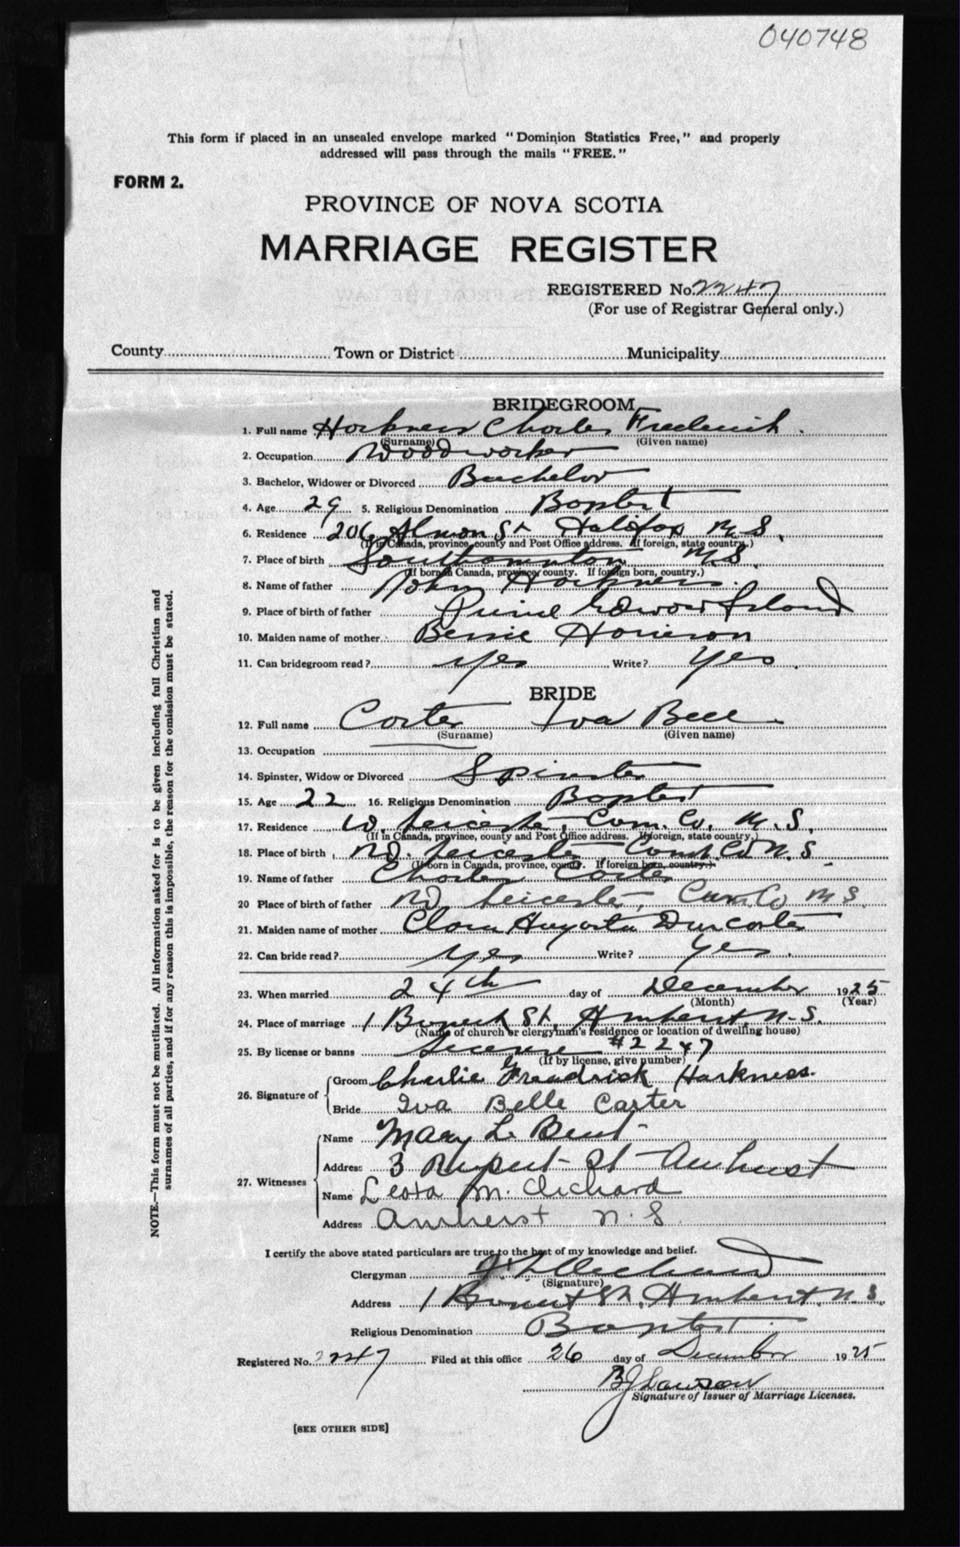 040748
This form if placed in an unsealed envelope marked "Dominion Statistics Free," and properly
addressed will pass through the mails "FREE."
FORM 2.
PROVINCE OF NOVA SCOTIA
MARRIAGE REGISTER
REGISTERED No. 2247
(For use of Registrar General only.)
County Town or District Municipality
BRIDEGROOM
1. Full name Harkness Charles Frederick.
(Surname) (Given name)
2. Occupation Woodworker
3. Bachelor, Widower or Divorced Bachelor
4. Age 29 5. Religious Denomination Baptist
6. Residence 206 Almon St Halifax N. S.
(If in Canada, province, county and Post Office address. If foreign, state country.)
7. Place of birth Southampton N.S.
(If born in Canada, province county. If foreign born, country.)
8. Name of father John Harkness.
9. Place of birth of father Prince Edward Island
10. Maiden name of mother Bessie Harrison
11. Can bridegroom read? Yes Write? Yes.
BRIDE
12. Full name Carter Iva Bell
(Surname) (Given name)
13. Occupation
14. Spinster, Widow or Divorced Spinster
15. Age 22 16. Religious Denomination Baptist
17. Residence W. Leicester, Cum. Co, N. S.
(If in Canada, province, county and Post Office address. If foreign, state country.)
18. Place of birth W. Leicester Cumb Co N. S.
(If born in Canada, province, county. If foreign born, country.)
19. Name of father Charles Carter
20 Place of birth of father W. Leicester, Cum. Co N S.
21. Maiden name of mother Clara Augusta
22. Can bride read? Yes Write? Yes.
23. When married 24th day of December 1925
(Month) (Year)
24. Place of marriage 1 St, Amherst, N-S.
(Name of church or clergyman's residence or location of dwelling house)
25. By license or banns License #2247
(If by license, give number)
26. Signature of Groom Charlie Freadrick Harkness.
Bride Iva Belle Carter
27. Witnesses Name Mary L. Bent
Address 3 Rupert St Amherst
Name Leota M. Richard
Address Amherst N. S.
NOTE.—This form must not be mutilated. All information asked for is to be given including full Christian and
surnames of all parties, and if for any reason this is impossible, the reason for the omission must be stated.
I certify the above stated particulars are true to the best of my knowledge and belief.
Clergyman
(Signature)
Address 1 St, Amherst, N. S.
Religious Denomination Baptist.
Registered No. 2247 Filed at this office 26 day of December 1925
B J Lawson
Signature of Issuer of Marriage Licenses.
[SEE OTHER SIDE]